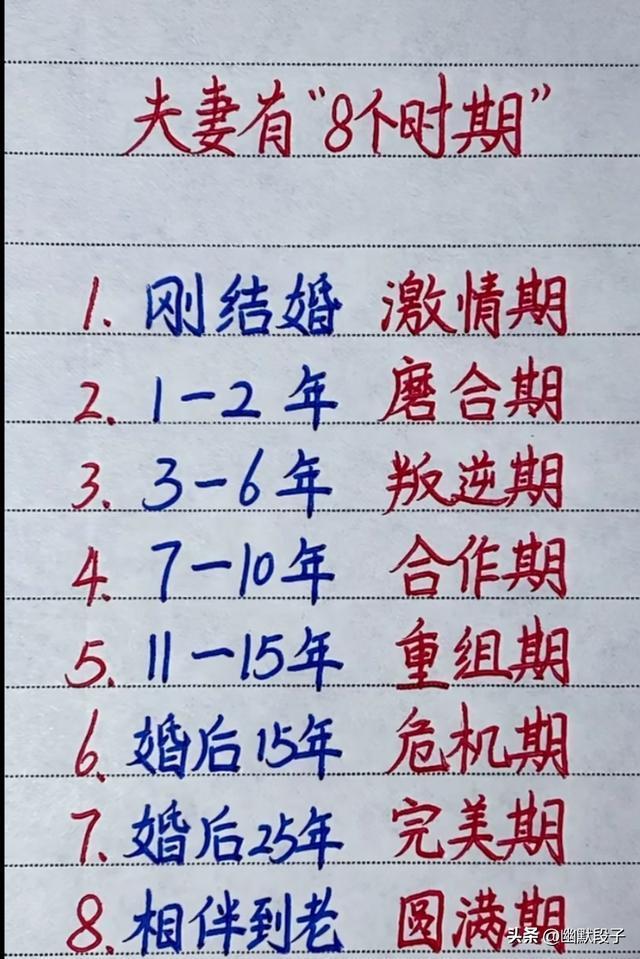 夫妻有“8个时期”
1. 刚结婚 激情期
2. 1-2年 磨合期
3. 3-6年 叛逆期
4. 7-10年 合作期
5. 11-15年 重组期
6. 婚后15年 危机期
7. 婚后25年 完美期
8. 相伴到老 圆满期
头条 @幽默段子